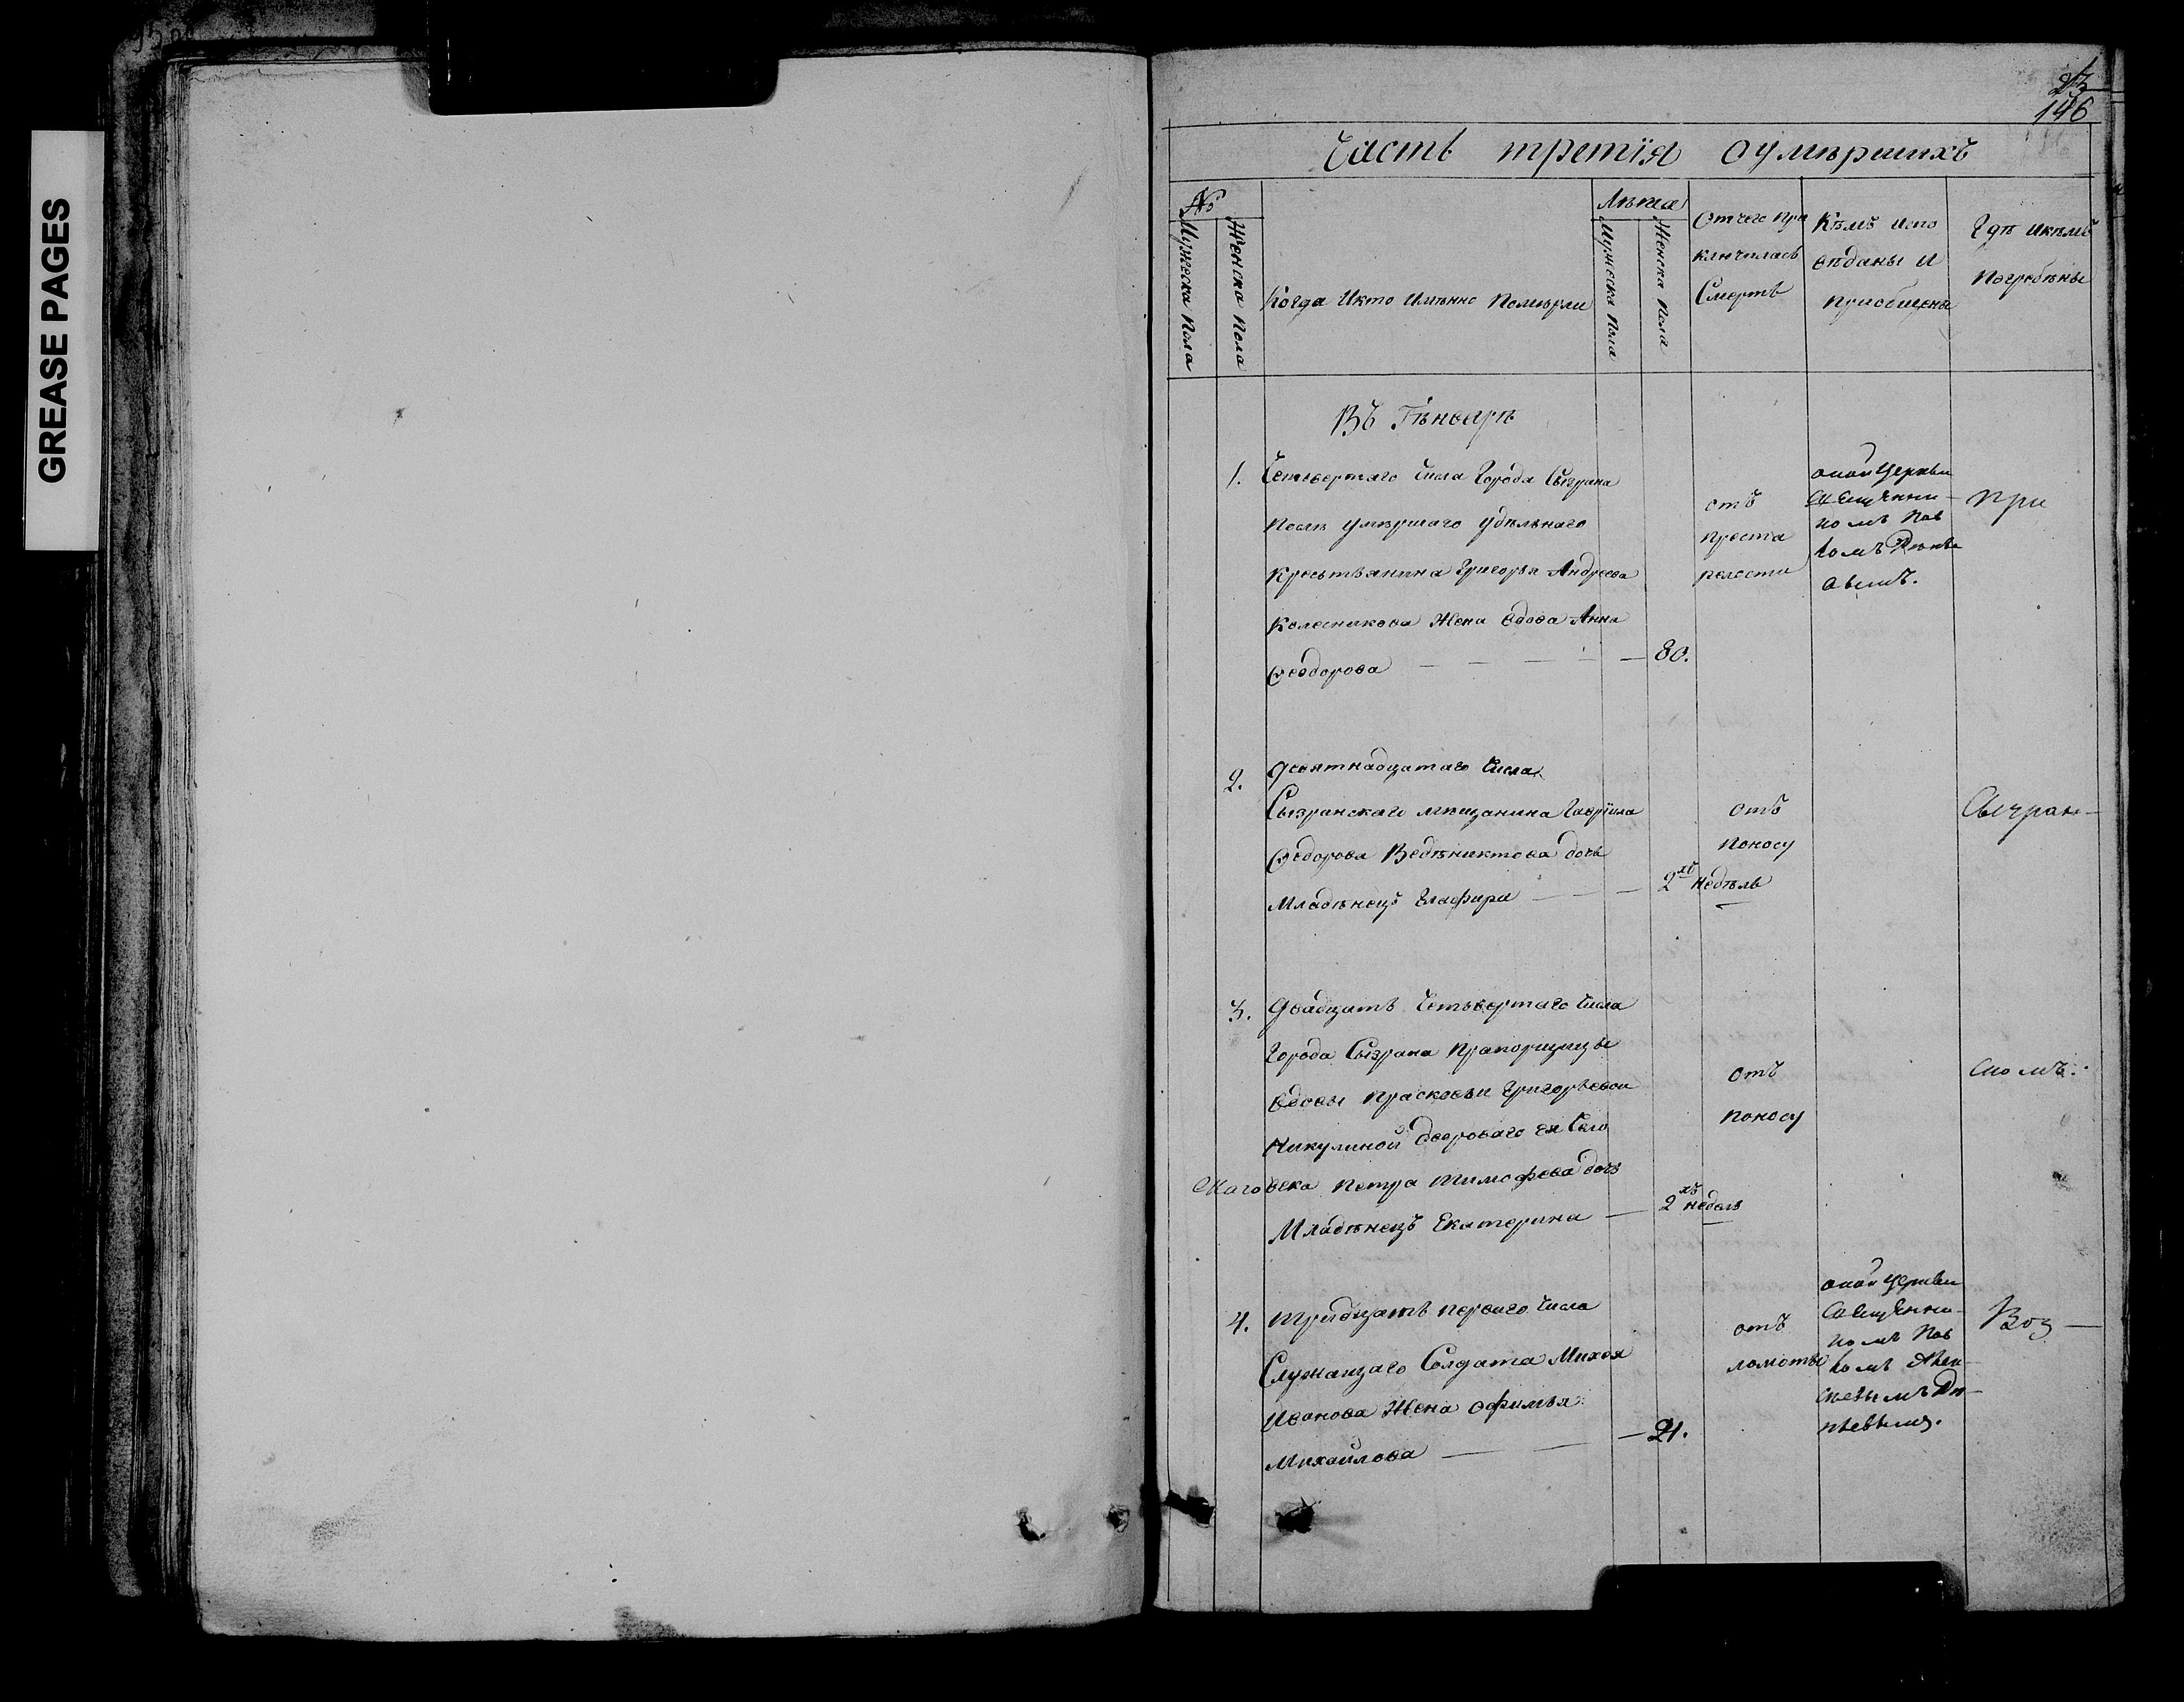 GREASE PAGES
23
146
Часть третїя оумѣршихъ
№
Мужеска пола
Женска пола
Когда Икто Имѣнно Помѣрли
Лѣта
Мужеска пола
Женска пола
Отчего при
ключилась
Смерть
Кѣмъ испо
вѣданы и
приобщены
Гдѣ икѣмъ
погребѣны
Въ Гѣнварѣ
1. Четвертаго числа Города Сызрана
послѣ умѣршаго удѣльнаго
Кресьтьянина Григорья Андреева
Колесникова Жена вдова Анна
Феодорова — 80.
отъ
проста
релости
оной Церкви
Священни-
комъ
при
2. Девятнадцатаго числа
Сызранскаго мѣщанина Гаврїила
Федорова Ведѣниктова дочь
Младѣнецъ Глафира — 2хъ недѣль
отъ
поносу
Сызран-
3. Двадцать Четьвертаго числа
Города Сызрана Прапорщицы
вдовы Прасковьи Григорьевои
Никулиной дворовагo ея
века Петра Тимофеева дочь
Младѣнецъ Екатерина — 2хъ недель
отъ
поносу
скомъ.
4. Тридцать перваго числа
Служащаго Солдата
Иванова Жена Офимья
Михайлова — 21.
отъ
ломоты
оной церкви
Священни-
комъ
Воз-